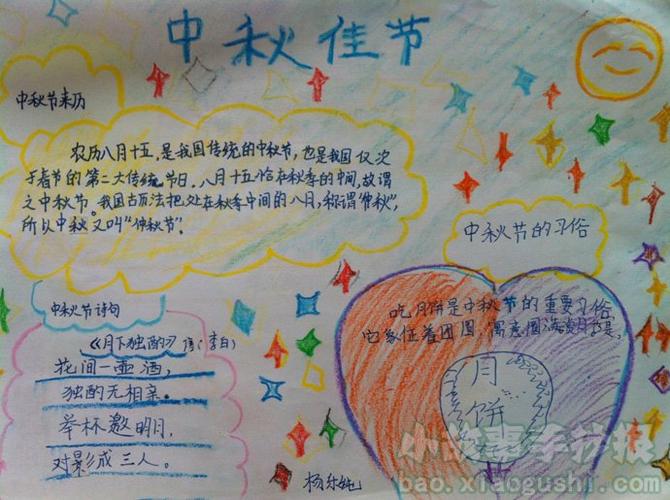 中秋佳节
中秋节来历
农历八月十五,是我国传统的中秋节,也是我国仅次
于春节的第二大传统节日。八月十五恰在秋季的中间,故谓
之中秋节。我国古历法把处在秋季中间的八月,称谓“仲秋”,
所以中秋又叫“仲秋节”。
中秋节的习俗
吃月饼是中秋节的重要习俗
它象征着团圆,寓意圆满
月
饼
中秋节诗句
《月下独酌》 唐(李白)
花间一壶酒,
独酌无相亲。
举杯邀明月,
对影成三人。
杨乐纯
小故事手抄报
bao.xiaogushi.com